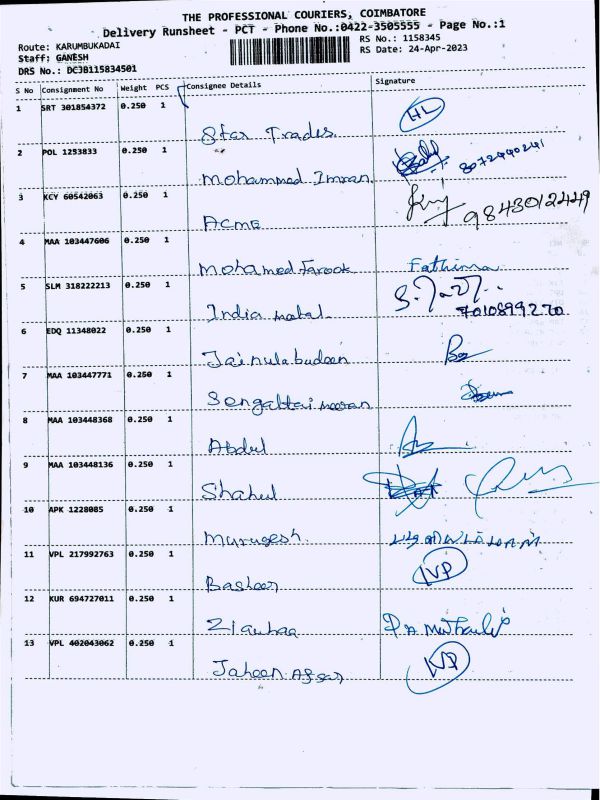 THE PROFESSIONAL COURIERS, COIMBATORE
Delivery Runsheet - PCT - Phone No.:0422-3505555 - Page No.:1
Route: KARUMBUKADAI RS No.: 1158345
Staff: GANESH RS Date: 24-Apr-2023
DRS No.: DCJB115834501
S No Consignment No Weight PCS Consignee Details Signature
1 SRT 301854372 0.250 1
Star Trades HL
2 POL 1253833 0.250 1
Mohammed Imran 8072440241
3 KCY 60542063 0.250 1
ACME 9843012449
4 MAA 103447606 0.250 1
Mohamed Farook Fathima
5 SLM 318222213 0.250 1
India metal 7010899270
6 EDQ 11348022 0.250 1
Jainulabudeen
7 MAA 103447771 0.250 1
Sengottai meeran
8 MAA 103448368 0.250 1
Abdul
9 MAA 103448136 0.250 1
Shahul
10 APK 1228085 0.250 1
Murugesh
11 VPL 217992763 0.250 1
Basheer
12 KUR 694727011 0.250 1
Ziauhaq
13 VPL 402043062 0.250 1
Jaheen Afsar